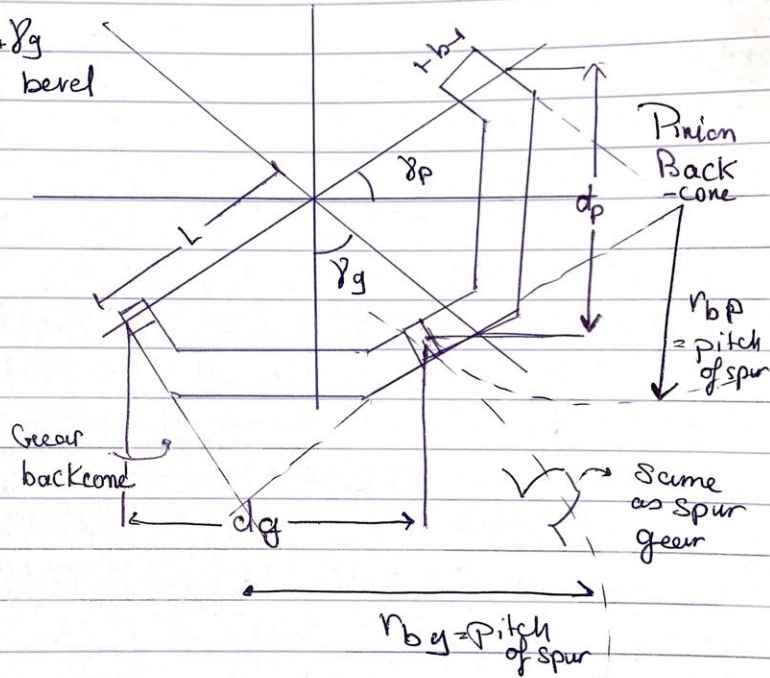 +γg
bevel
b
γp
Pinion
Back
-cone
dp
L
γg
rbp
= pitch
of spur
Geear
backcone
dg
Same
as spur
gear
rbg = pitch
of spur